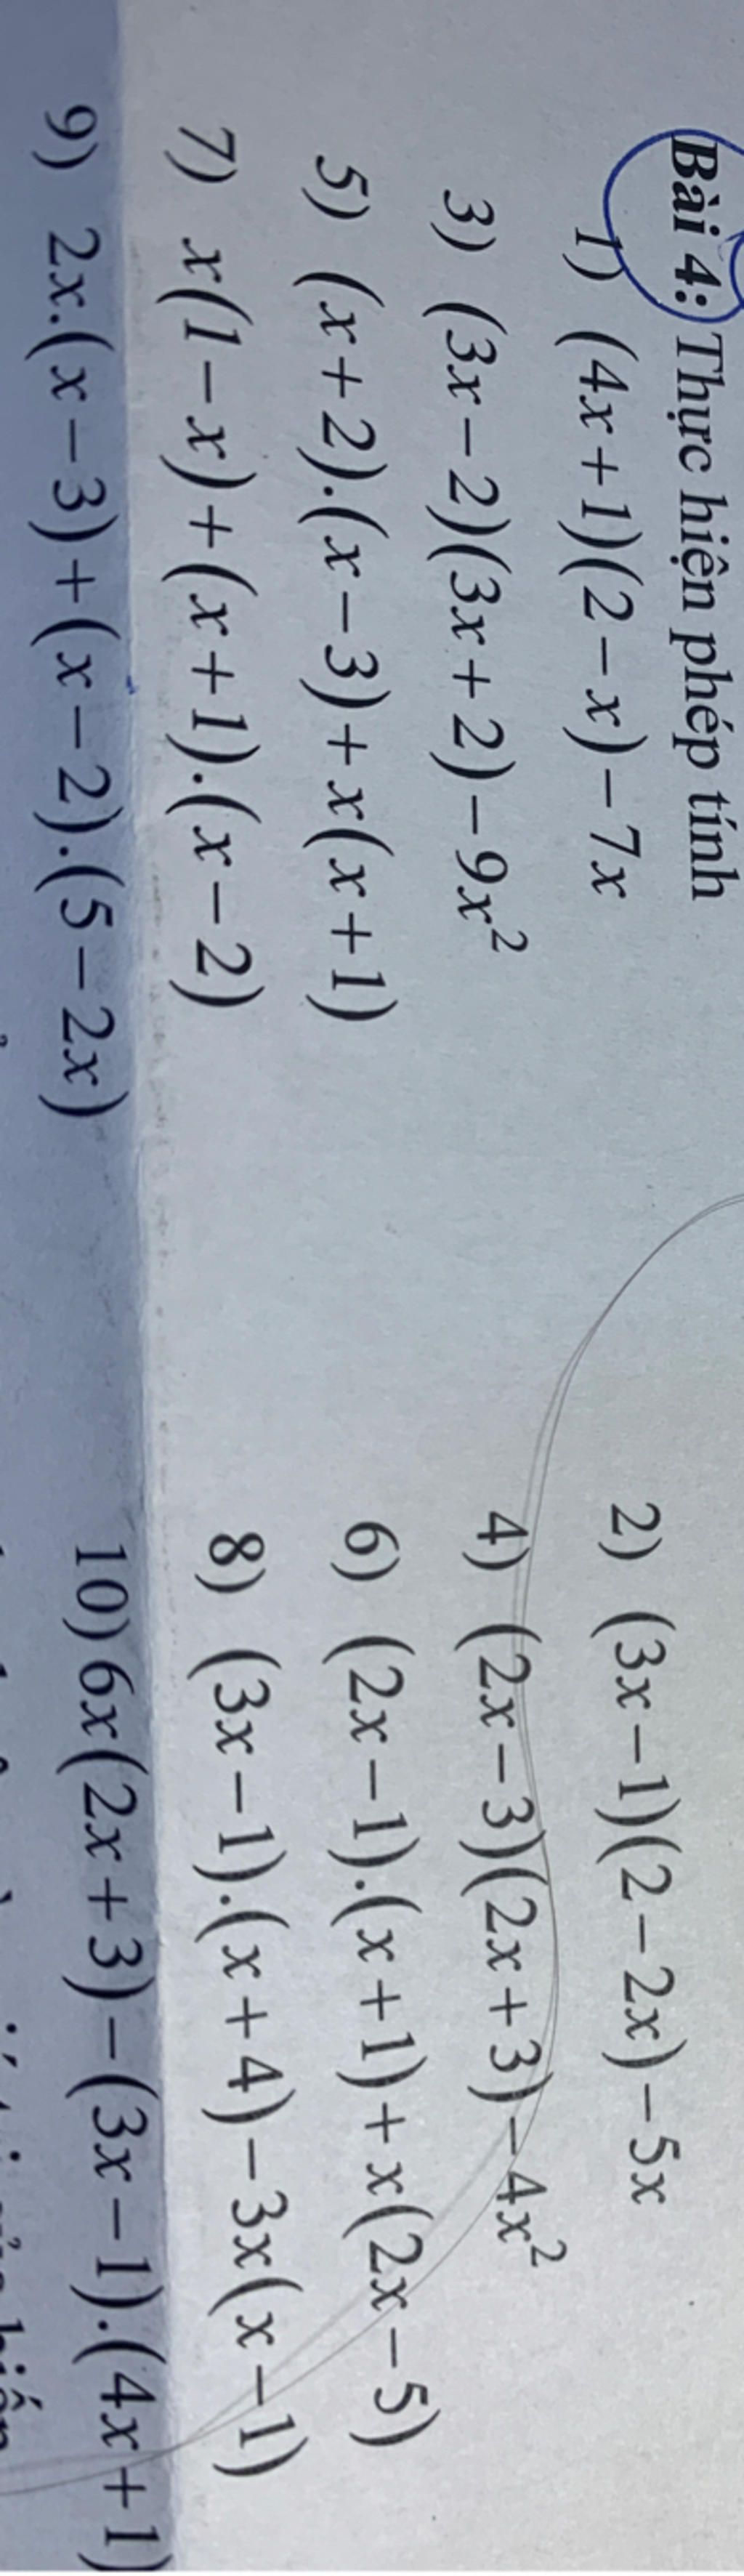 Bài 4: Thực hiện phép tính
1) (4x+1)(2−x)−7x 2) (3x−1)(2−2x)−5x
3) (3x−2)(3x+2)−9x² 4) (2x−3)(2x+3)−4x²
5) (x+2).(x−3)+x(x+1) 6) (2x−1).(x+1)+x(2x−5)
7) x(1−x)+(x+1).(x−2) 8) (3x−1).(x+4)−3x(x−1)
9) 2x.(x−3)+(x−2).(5−2x) 10) 6x(2x+3)−(3x−1).(4x+1)